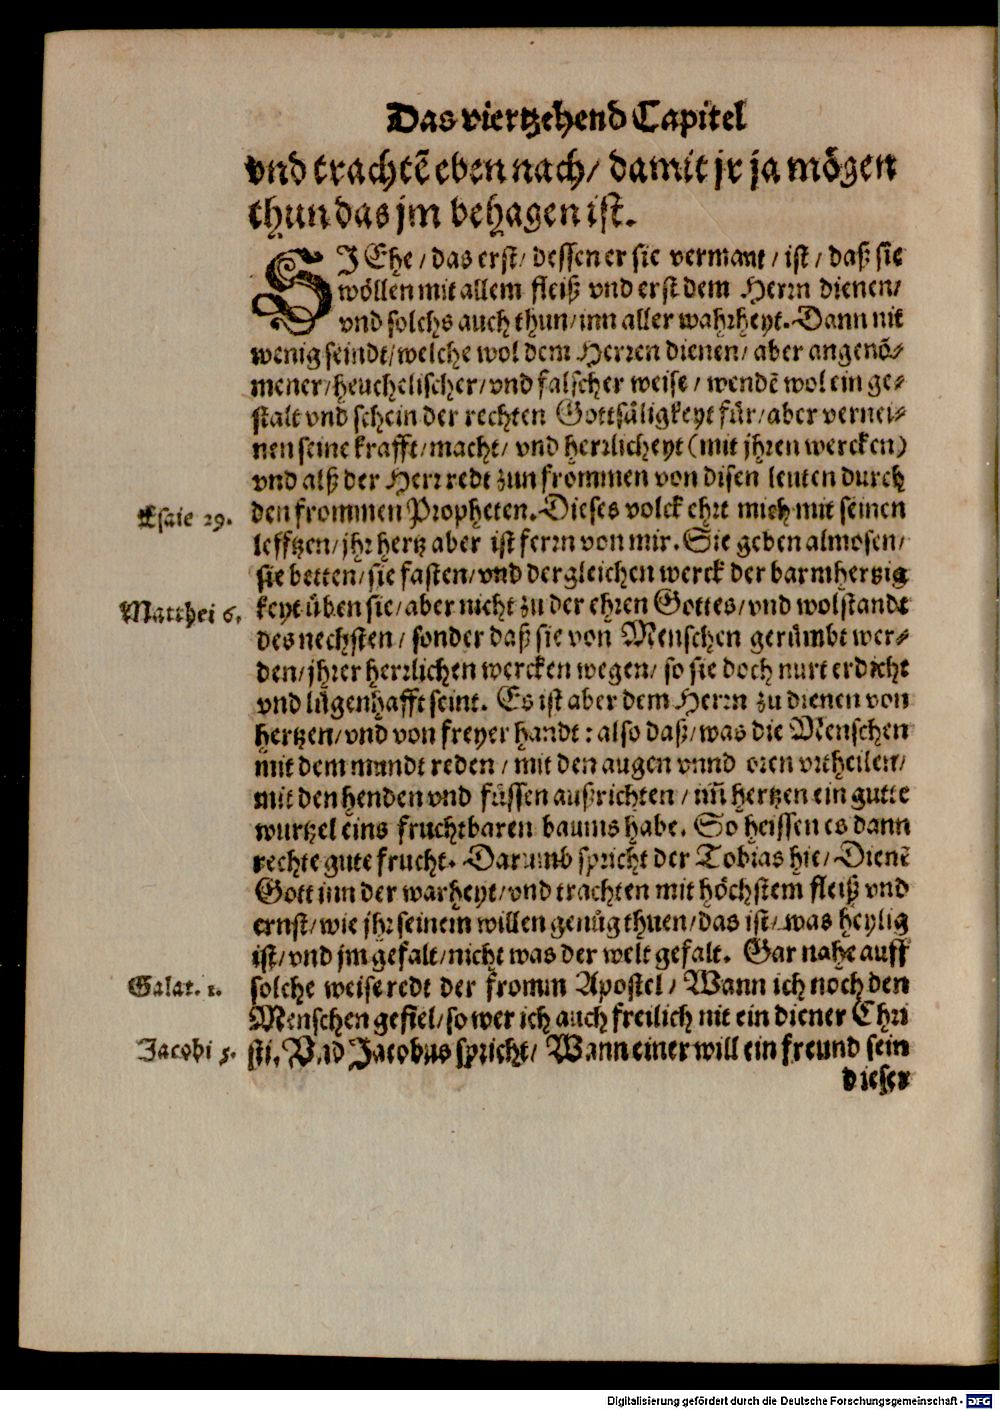 Das viertzehend Capitel
vnd trachtē eben nach/ damit jr ja mögen
thun das jm behagen ist.
SIEhe/ das erst/ dessen er sie vermant/ ist/ daß sie
wöllen mit allem fleiß vnd erst dem Herrn dienen/
vnd solchs auch thun/ inn aller wahrheyt. Dann nit
wenig seindt/ welche wol dem Herren dienen/ aber angenō-
mener/ heuchelischer/ vnd falscher weise/ wendē wol ein ge-
stalt vnd schein der rechten Gottsäligkeyt für/ aber vernei-
nen seine krafft/ macht/ vnd herrlicheyt (mit jhren wercken)
vnd alß der Herr redt zun frommen von disen leuten durch
Esaie 29. den frommen Propheten. Dieses volck ehrt mich mit seinen
lefftzen/ jhr hertz aber ist ferrn von mir. Sie geben almosen/
sie betten/ sie fasten/ vnd dergleichen werck der barmhertzig
Matthei 6. keyt üben sie/ aber nicht zu der ehren Gottes/ vnd wolstandt
des nechsten/ sonder daß sie von Menschen gerümbt wer-
den/ jhrer herrlichen wercken wegen/ so sie doch nurt erdicht
vnd lügenhafft seint. Es ist aber dem Herrn zu dienen von
hertzen/ vnd von freyer handt: also daß/ was die Menschen
mit dem mundt reden/ mit den augen vnnd oren vrtheilen/
mit den henden vnd füssen außrichten/ im̄ hertzen ein gutte
wurtzel eins fruchtbaren baums habe. So heissen es dann
rechte gute frucht. Darumb spricht der Tobias hie/ Dienē
Gott inn der warheyt/ vnd trachten mit höchstem fleiß vnd
ernst/ wie jhr seinem willen genüg thuen/ das ist/ was heylig
ist/ vnd jm gefalt/ nicht was der welt gefalt. Gar nahe auff
Galat. 1. solche weise redt der fromm Apostel/ Wann ich noch den
Menschen gefiel/ so wer ich auch freilich nit ein diener Chri
Jacobi 5. sti. Vnd Jacobus spricht/ Wann einer will ein freund sein
dieser
Digitalisierung gefördert durch die Deutsche Forschungsgemeinschaft - DFG